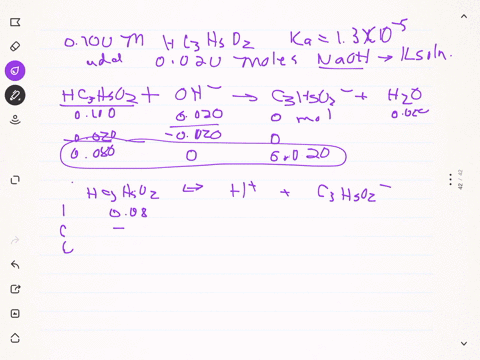 0.100 M HC3H5O2 Ka = 1.3X10-5
add 0.020 moles NaOH → 1L soln.
HC3H5O2 + OH- → C3H5O2- + H2O
0.100 0.020 0 mol 0.020
-0.020 -0.020 0
0.080 0 0.020
HC3H5O2 ↔ H+ + C3H5O2-
I 0.08
C -
42 / 42